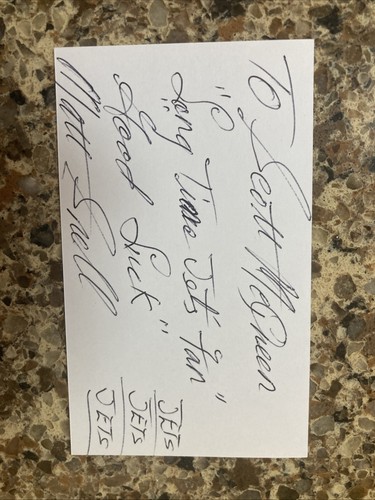 To Scott McGreen
"a
Long Time Jets fan"
Good Luck"
Matt Snell
JETS
JETS
JETS